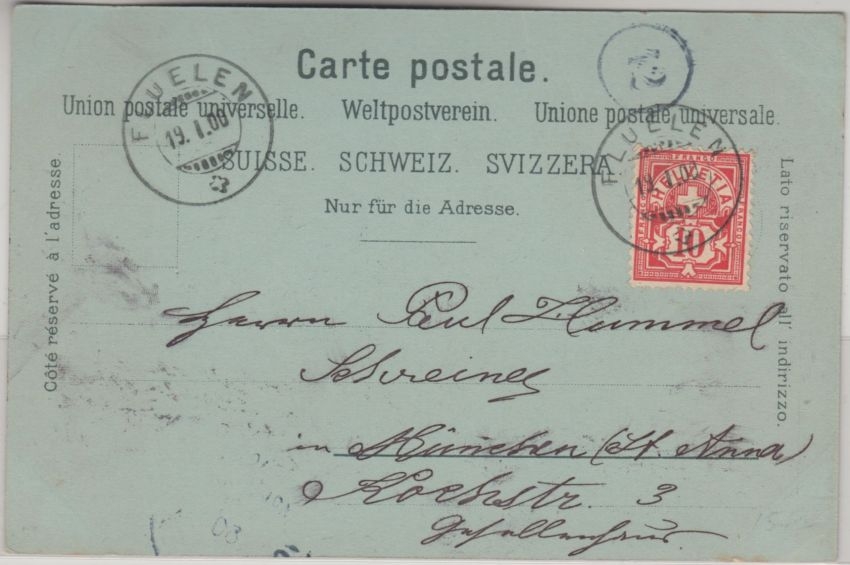 Carte postale.
Union postale universelle. Weltpostverein. Unione postale universale.
SUISSE. SCHWEIZ. SVIZZERA
Nur für die Adresse.
Côté réservé à l'adresse.
Lato riservato all' indirizzo.
FLUELEN
19.I.00
FLUELEN
FRANCO
HELVETIA
10
Herrn Paul Hummel
Schreiner
in München (St. Anna)
Kochstr. 3
Gesellenhaus